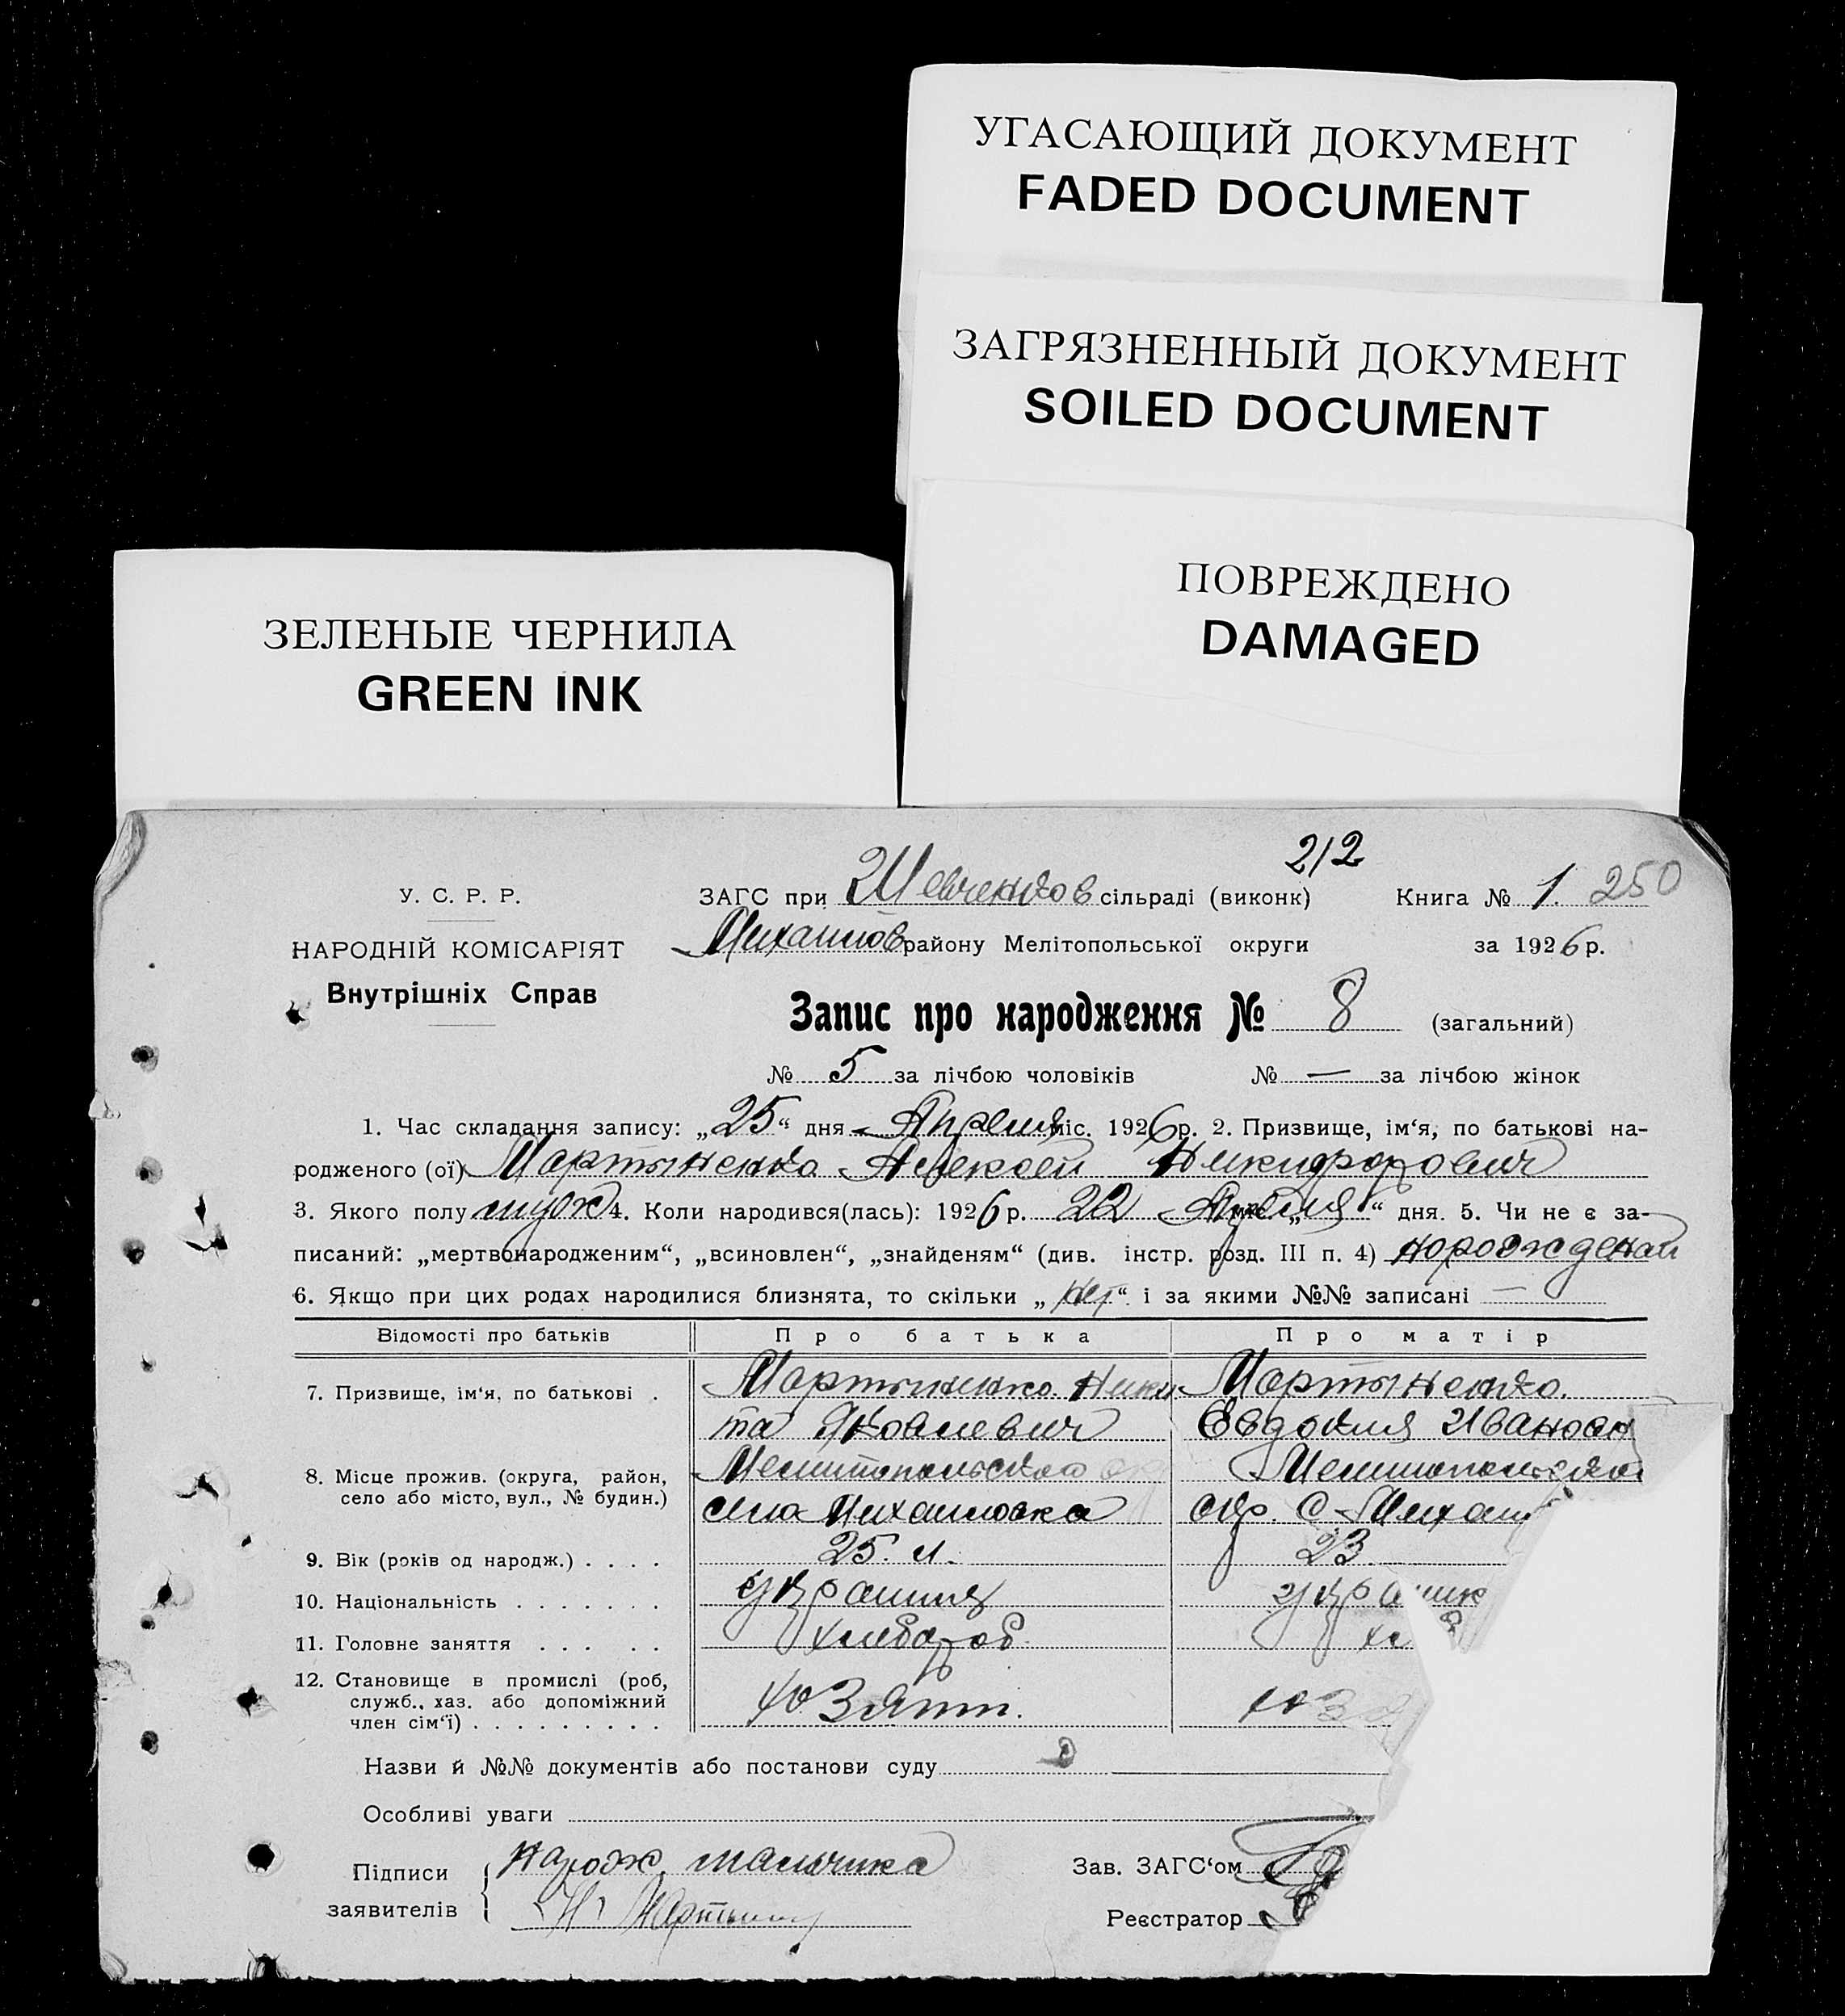 УГАСАЮЩИЙ ДОКУМЕНТ
FADED DOCUMENT
ЗАГРЯЗНЕННЫЙ ДОКУМЕНТ
SOILED DOCUMENT
ПОВРЕЖДЕНО
DAMAGED
ЗЕЛЕНЫЕ ЧЕРНИЛА
GREEN INK
212
У. С. Р. Р.
ЗАГС при Шевченков сільраді (виконк) Книга № 1. 250
НАРОДНІЙ КОМІСАРІЯТ
Михайлов району Мелітопольської округи за 1926 р.
Внутрішніх Справ
Запис про народження № 8 (загальний)
№ 5 за лічбою чоловіків № — за лічбою жінок
1. Час складання запису: „25“ дня Апреля міс. 1926 р. 2. Призвище, ім‘я, по батькові на-
родженого (ої) Мартыненко Алексей Никифорович
3. Якого полу муж 4. Коли народився(лась): 1926 р. 22 Апреля „ “ дня. 5. Чи не є за-
писаний: „мертвонародженим“, „всиновлен“, „знайденям“ (див. інстр. розд. III п. 4)
6. Якщо при цих родах народилися близнята, то скільки „нет“ і за якими №№ записані —
Відомості про батьків Про батька Про матір
7. Призвище, ім‘я, по батькові . Мартыненко Ники Мартыненко
та Яковлевич Евдокия Ивановн
8. Місце прожив. (округа, район, Мелитопольского Мелитопольской
село або місто, вул., № будин.) села Михайловка окр. С. Михай
9. Вік (років од народж.) . . . . 25. л. 23
10. Національність . . . . . . . украинц украинк
11. Головне заняття . . . . . хлебороб хл
12. Становище в промислі (роб,
служб., хаз. або допоміжний
член сім‘ї) . . . . . . . . .
Назви й №№ документів або постанови суду
Особливі уваги
Підписи Народж. мальчика Зав. ЗАГС‘ом
заявителів Н. Мартын Реєстратор